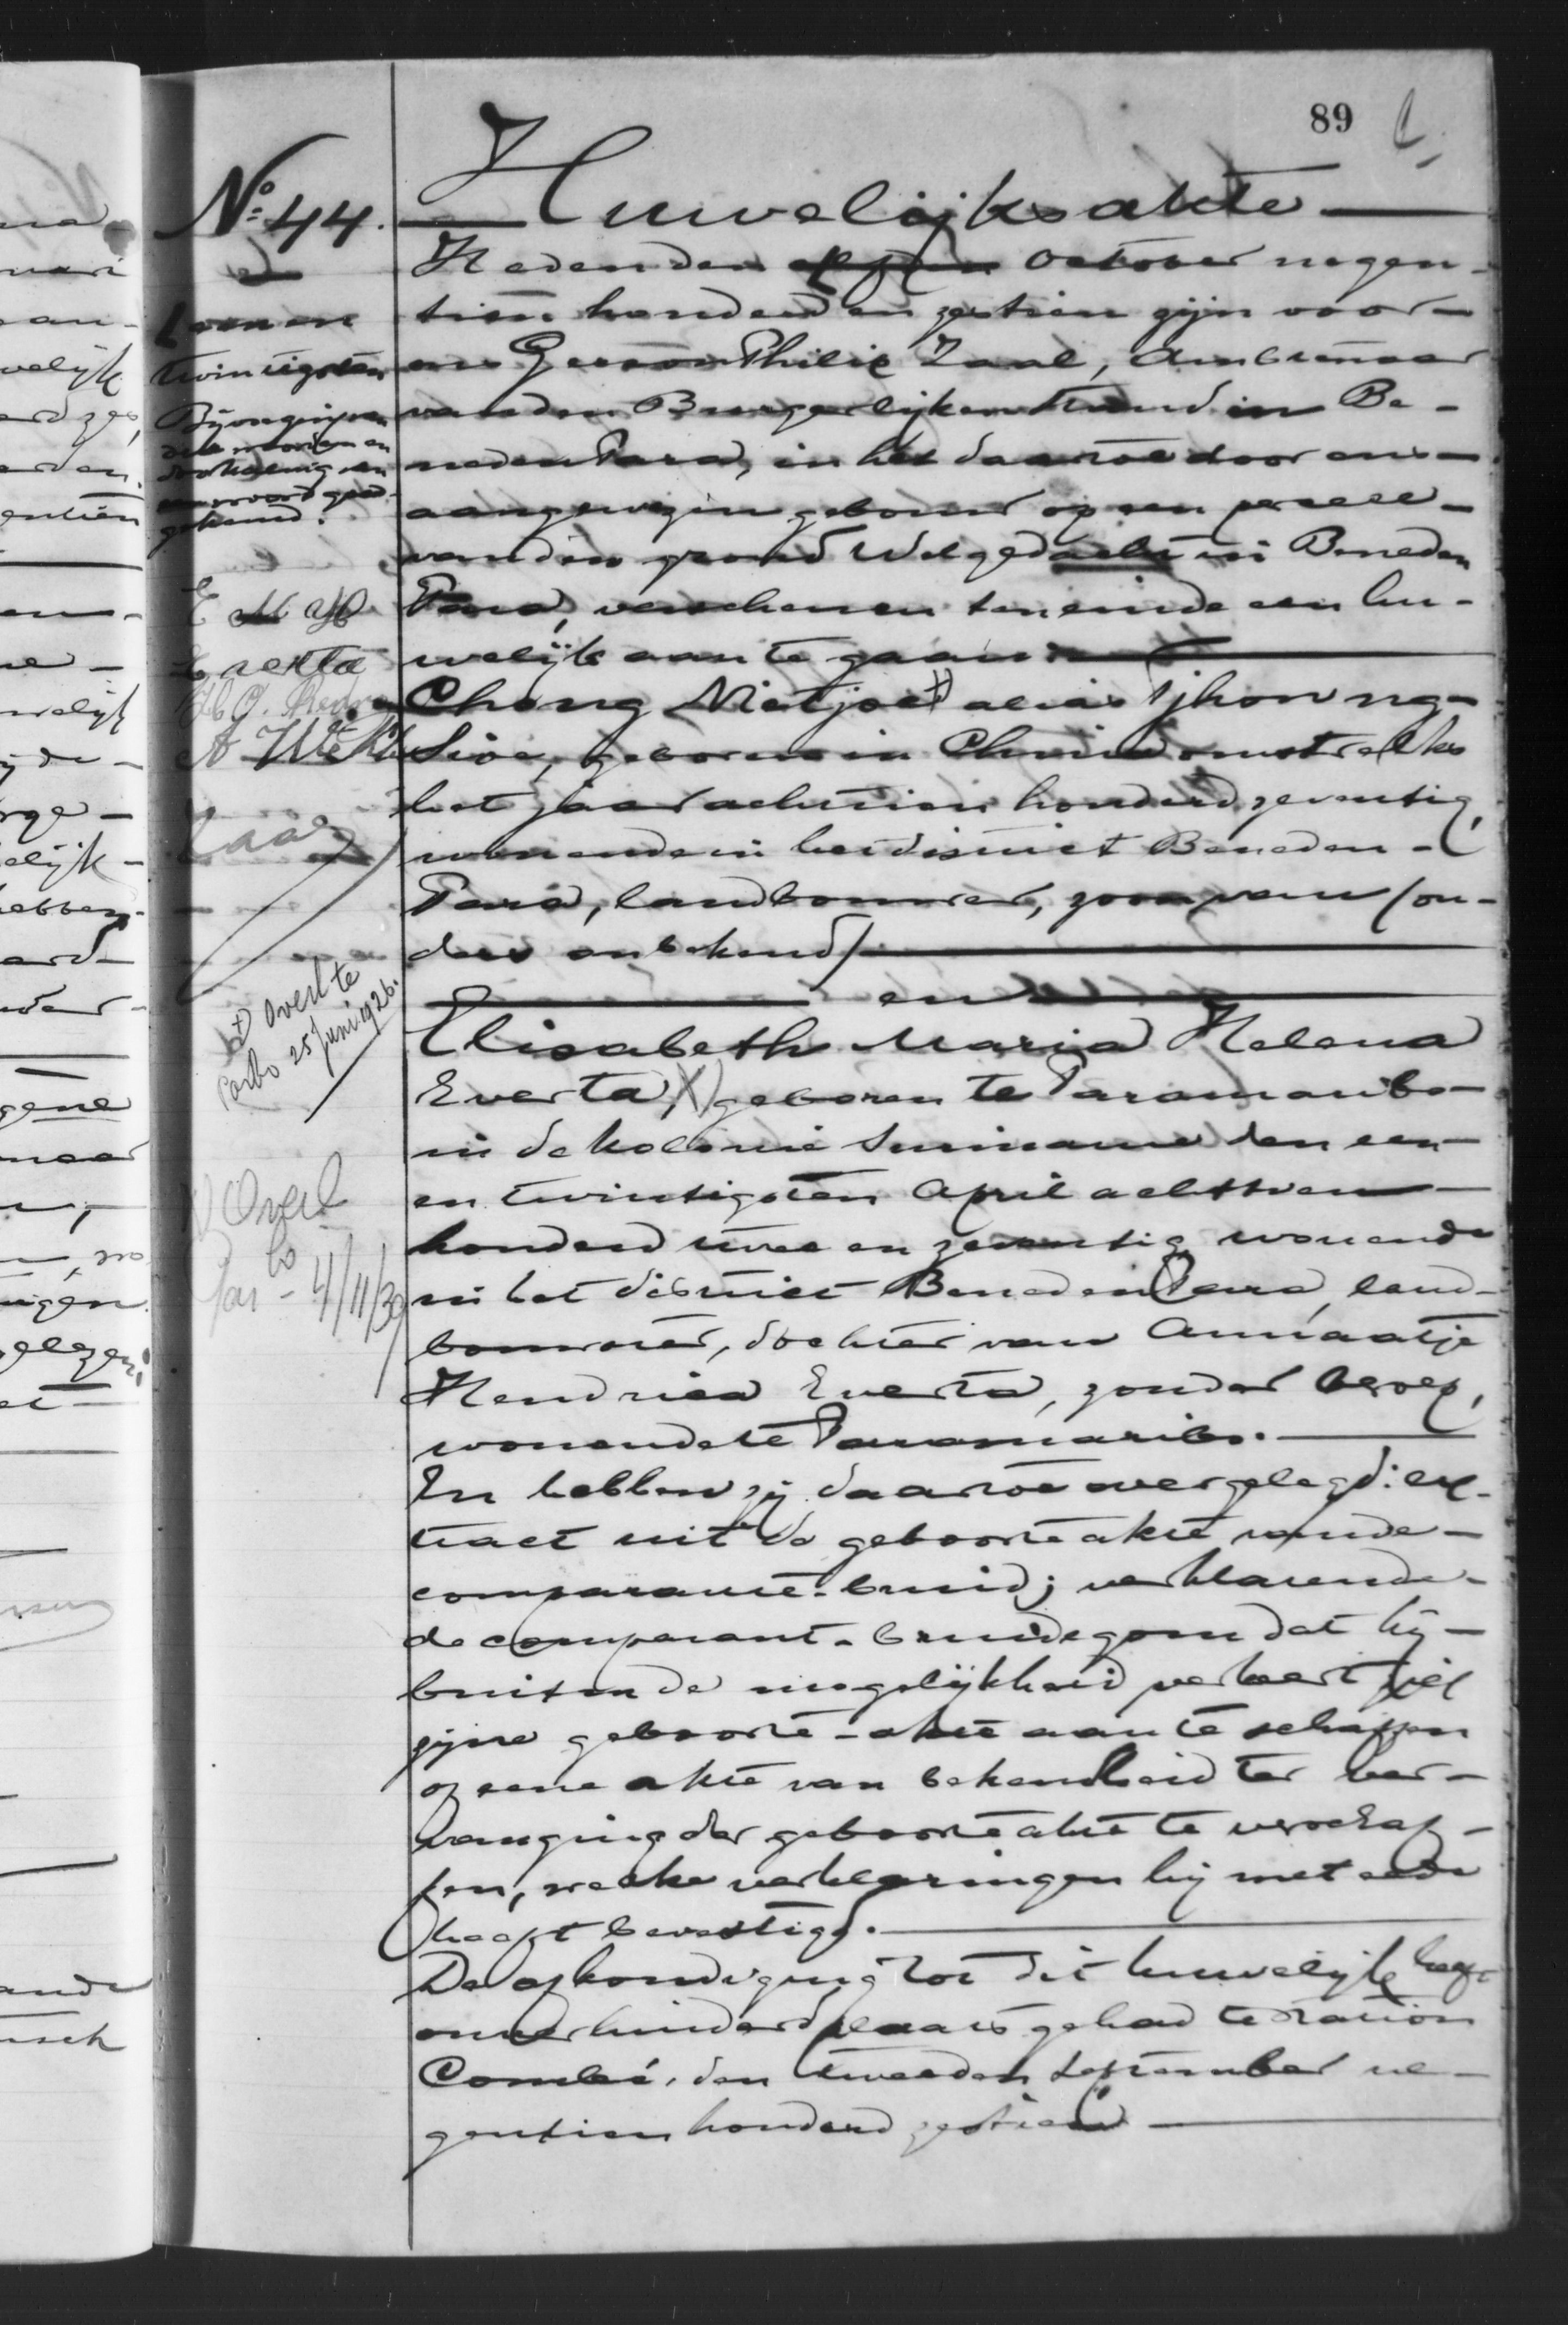 89
Nº 44.
Huwelijksakte
Heden den October negen-
tien honderd en zestien zijn voor
ons Gerson Philip Zaal, Ambtenaar
van den Burgerlijken Stand in Be-
neden Para, in het daartoe door ons
aangewezen gebouw op een perceel
van den grond Welgedacht in Beneden
Para, verschenen ten einde een hu-
welijk aan te gaan
Chong Nietjoe alias Tjhon ng-
Sioe, geboren in China omstreeks
het jaar achttien honderd zeventig,
wonende in het district Beneden-
Para, landbouwer, zoon van (ou-
ders onbekend)
en
Elisabeth Maria Helena
Everta, geboren te Paramaribo
in de kolonie Suriname den een
en twintigsten April achttien
honderd twee en zeventig, wonende
in het district Beneden Para, land-
bouwster, dochter van Annaatje
Hendrica Everta, zonder beroep,
wonende te Paramaribo.
En hebben zij daartoe overgelegd: ex-
tract uit de geboorteakte van de
comparante-bruid; verklarende
de comparant-bruidegom dat hij
buiten de mogelijkheid verkeert
zijne geboorte-akte aan te schaffen
of eene akte van bekendheid ter ver-
vanging der geboorteakte te verschaf-
fen, welke verklaringen hij met eede
heeft bevestigd.
De afkondiging tot dit huwelijk heeft
onverhinderd plaats gehad te station
Combé, den tweeden September ne-
gentien honderd zestien
een en
twintigsten
Bijvoeging van
drie woorden en
doorhaling van
een woord goed-
gekeurd.
E M H
Everta
Zaal
Overl te
Parbo 25 Juni 1926.
Overl
Par bo - 4/11/39